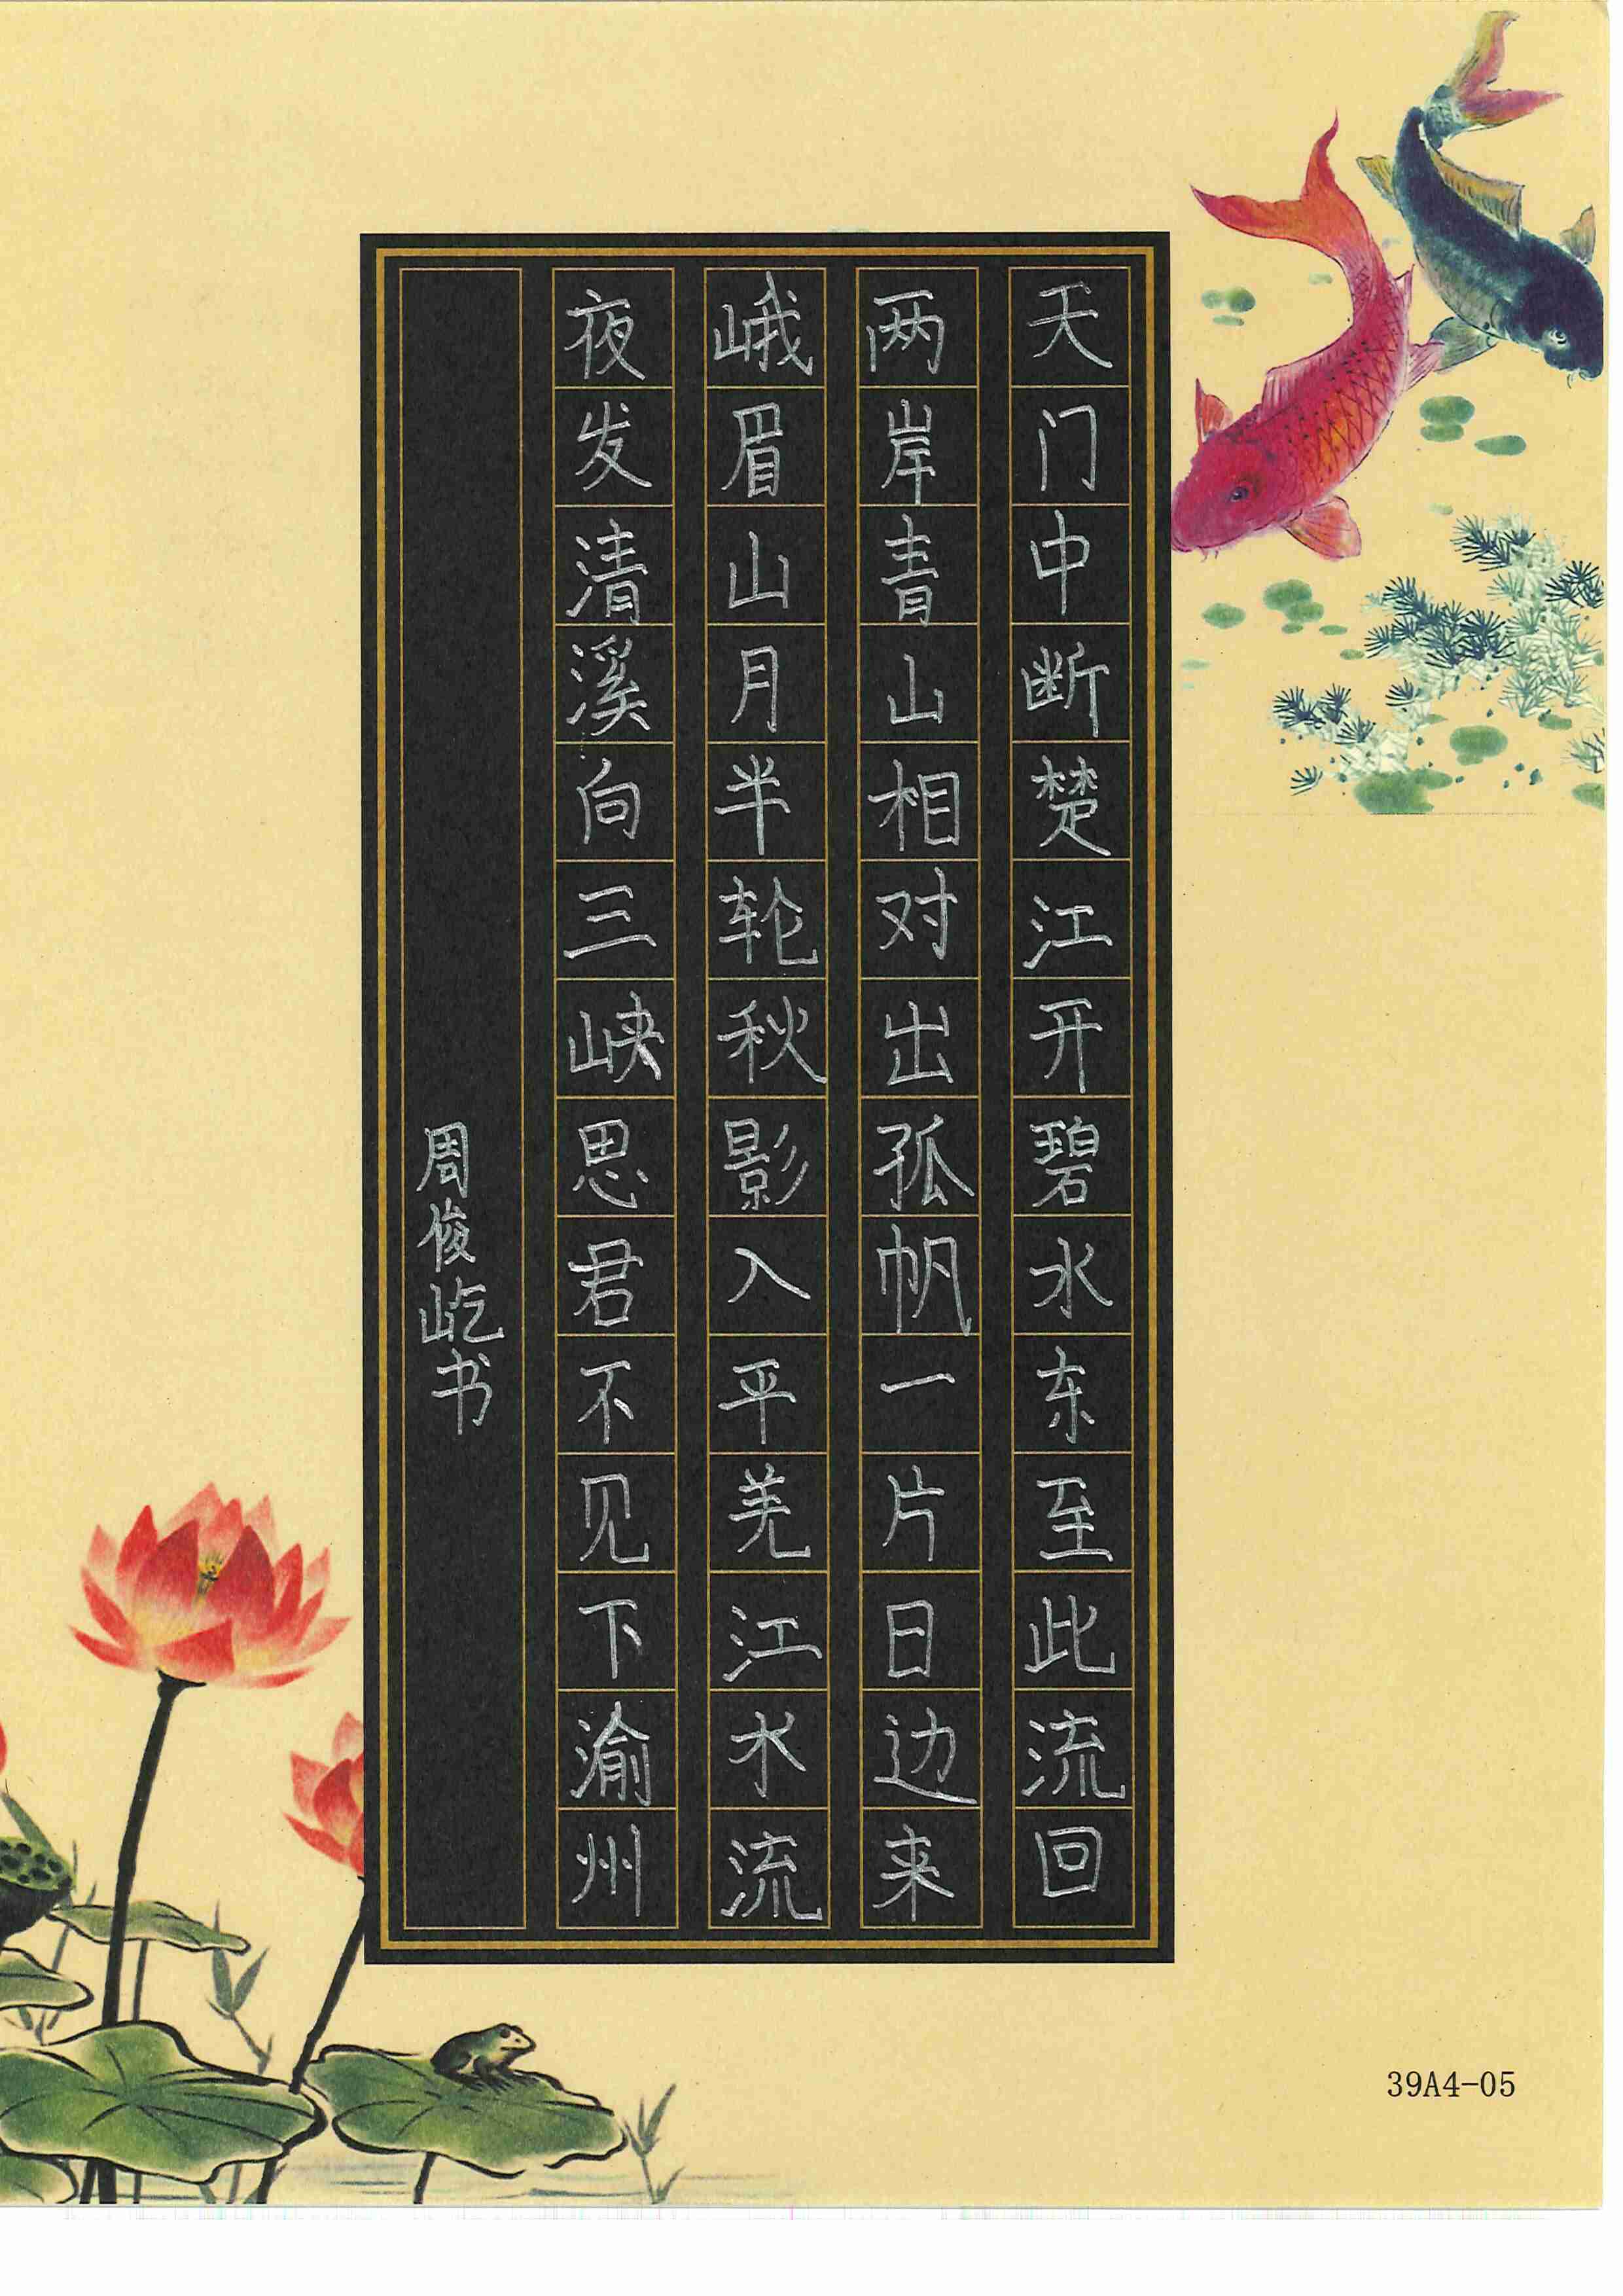 天门中断楚江开碧水东至此流回
两岸青山相对出孤帆一片日边来
峨眉山月半轮秋影入平羌江水流
夜发清溪向三峡思君不见下渝州
周俊屹书
39A4-05